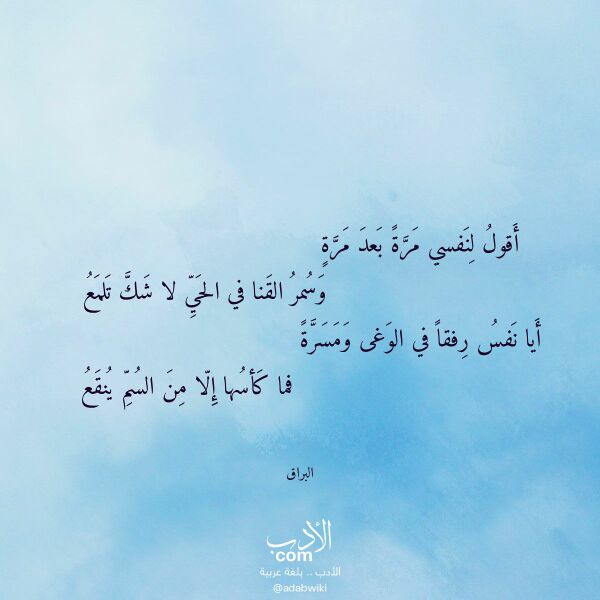 أَقولُ لِنَفسي مَرَّةً بَعدَ مَرَّةٍ
وَسُمرُ القَنا في الحَيِّ لا شَكَّ تَلمَعُ
أَيا نَفسُ رِفقاً في الوَغى وَمَسَرَّةً
فما كَأسُها إِلّا مِنَ السُمِّ يُنقَعُ
البراق
الأدب
com
الأدب .. بلغة عربية
@adabwiki